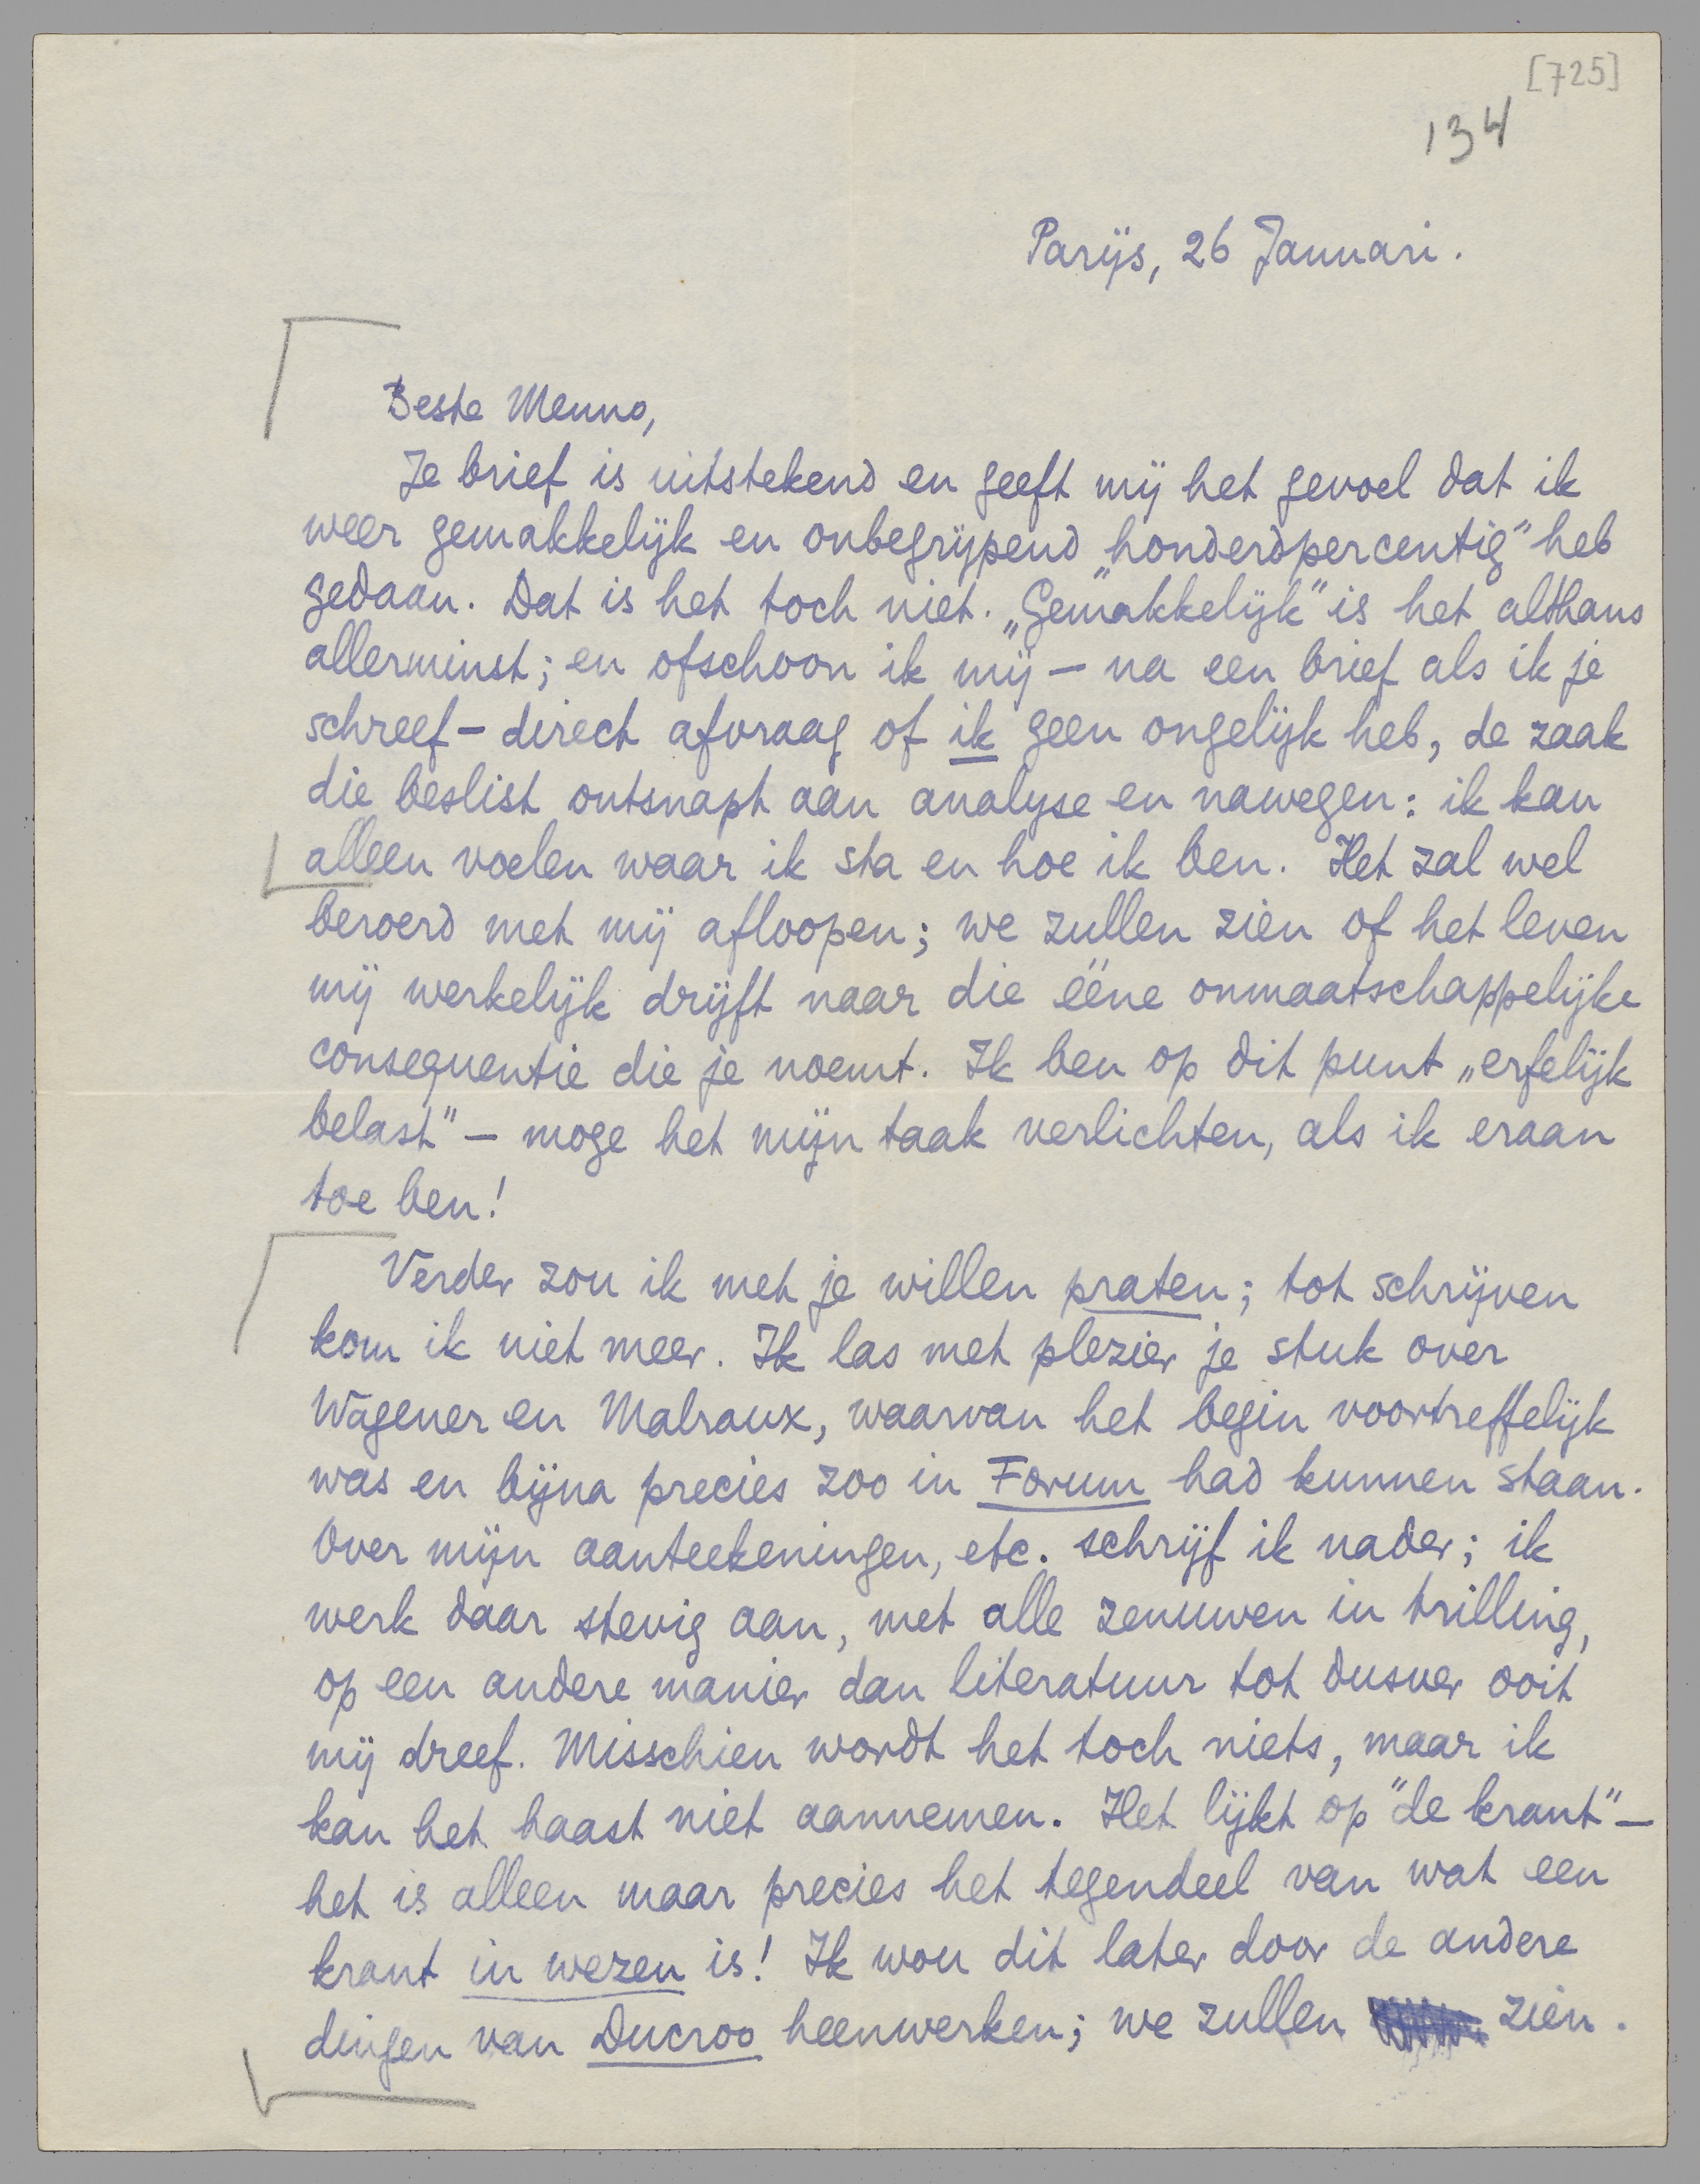 [725]
134
Parijs, 26 Januari.
Beste Menno,
Je brief is uitstekend en geeft mij het gevoel dat ik
weer gemakkelijk en onbegrijpend „honderdpercentig” heb
gedaan. Dat is het toch niet. „Gemakkelijk” is het althans
allerminst; en ofschoon ik mij – na een brief als ik je
schreef – direct afvraag of ik geen ongelijk heb, de zaak
die beslist ontsnapt aan analyse en nawegen: ik kan
alleen voelen waar ik sta en hoe ik ben. Het zal wel
beroerd met mij afloopen; we zullen zien of het leven
mij werkelijk drijft naar die ééne onmaatschappelijke
consequentie die je noemt. Ik ben op dit punt „erfelijk
belast” – moge het mijn taak verlichten, als ik eraan
toe ben!
Verder zou ik met je willen praten; tot schrijven
kom ik niet meer. Ik las met plezier je stuk over
Wagener en Malraux, waarvan het begin voortreffelijk
was en bijna precies zoo in Forum had kunnen staan.
Over mijn aanteekeningen, etc. schrijf ik nader; ik
werk daar stevig aan, met alle zenuwen in trilling,
op een andere manier dan literatuur tot dusver ooit
mij dreef. Misschien wordt het toch niets, maar ik
kan het haast niet aannemen. Het lijkt op “de krant” –
het is alleen maar precies het tegendeel van wat een
krant in wezen is! Ik wou dit later door de andere
dingen van Ducroo heenwerken; we zullen zien.